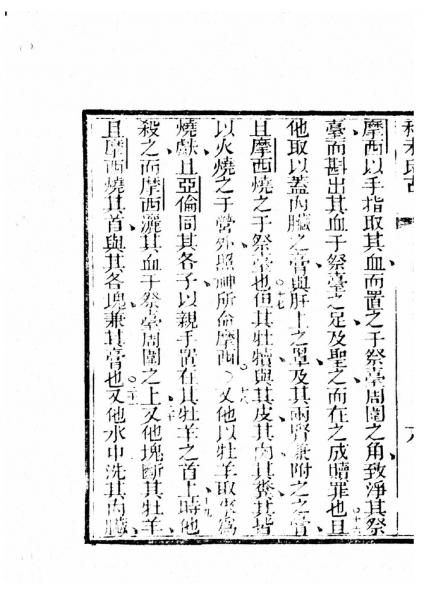 摩西以手指取其血而置之于祭臺周圍之角致淨其祭
臺而斟出其血于祭臺之足及聖之而在之成贖罪也且
他取以蓋內臟之膏與肝上之罩及其兩腎兼附之之膏
且摩西燒之于祭臺也但其牡犢與其皮其肉其糞其皆
以火燒之于營外照神所命摩西又他以牡羊取來為
燒獻且亞倫同其各子以親手置在其牡羊之首上時他
殺之而摩西灑其血于祭臺周圍之上又他塊斷其牡羊
且摩西燒其首與其各塊兼其膏也又他水中洗其內臟